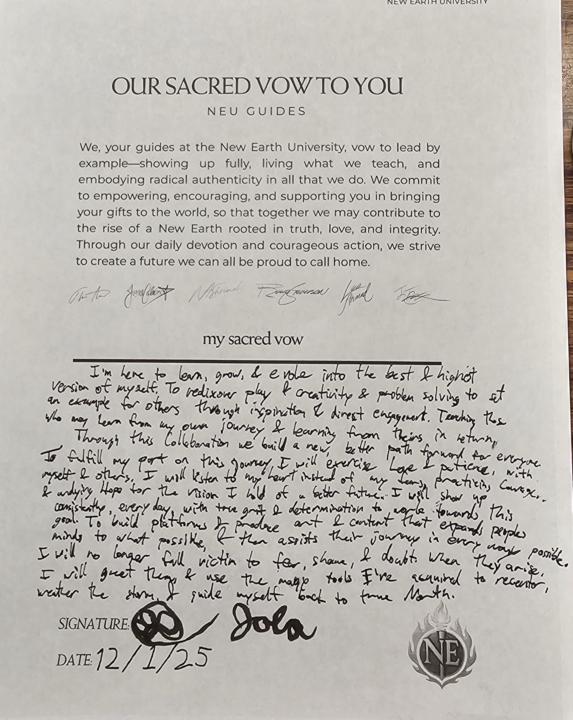 NEW EARTH UNIVERSITY
OUR SACRED VOW TO YOU
NEU GUIDES
We, your guides at the New Earth University, vow to lead by
example—showing up fully, living what we teach, and
embodying radical authenticity in all that we do. We commit
to empowering, encouraging, and supporting you in bringing
your gifts to the world, so that together we may contribute to
the rise of a New Earth rooted in truth, love, and integrity.
Through our daily devotion and courageous action, we strive
to create a future we can all be proud to call home.
my sacred vow
I'm here to learn, grow, & evolve into the best & highest
version of myself. To rediscover play & creativity & problem solving to set
an example for others through inspiration & direct engagement. Teaching those
who may learn from my own journey & learning from theirs in return.
Through this collaboration we build a new, better path forward for everyone
To fulfill my part on this journey, I will exercise love & patience, with
myself & others, I will listen to my heart instead of my fears, practicing courage,
& undying hope for the vision I hold of a better future. I will show up
consistently, every day, with true grit & determination to work towards this
goal. To build platforms & produce art & content that expands peoples
minds to what possible, & then assists their journey in every way possible.
I will no longer fall victim to fear, shame, & doubt. When they arise,
I will greet them & use the tools I've acquired to recenter,
weather the storm, & guide myself back to true North.
SIGNATURE: Jola
DATE: 12/1/25
NE